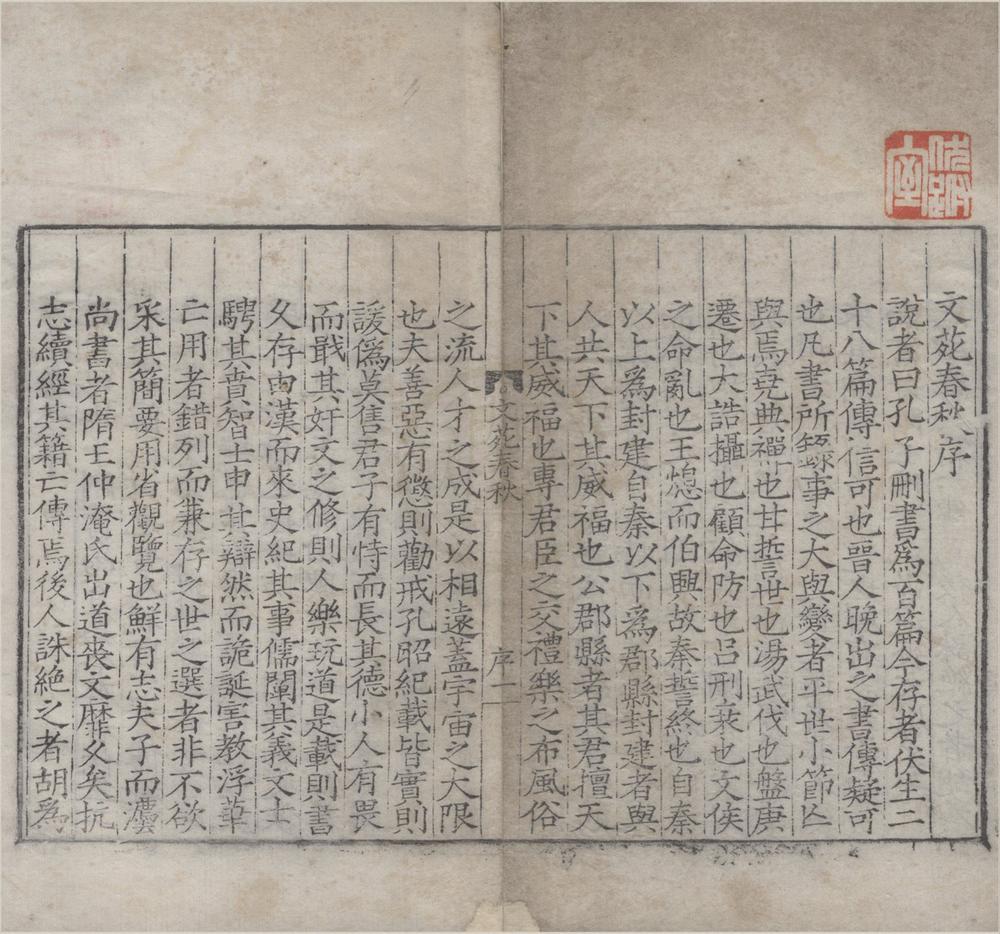 文苑春秋序
說者曰孔子刪書爲百篇今存者伏生二
十八篇傳信可也晉人晚出之書傳疑可
也凡書所錄事之大與變者平世小節亾
與焉堯典禪也甘誓世也湯武伐也盤庚
遷也大誥攝也顧命防也呂刑衰也文侯
之命亂也王熄而伯興故秦誓終也自秦
以上爲封建自秦以下爲郡縣封建者與
人共天下其威福也公郡縣者其君擅天
下其威福也專君臣之交禮樂之布風俗
文苑春秋
序
一
之流人才之成是以相遠蓋宇宙之大限
也夫善惡有懲則勸戒孔昭紀載皆實則
諼僞莫售君子有恃而長其德小人有畏
而戢其奸文之修則人樂玩道是載則書
久存由漢而來史紀其事儒闡其義文士
騁其賁智士申其辯然而詭誕害教浮華
亡用者錯列而兼存之世之選者非不欲
采其簡要用省觀覽也鮮有志夫子而灋
尚書者隋王仲淹氏出道喪文靡久矣抗
志續經其籍亡傳焉後人誅絶之者胡爲